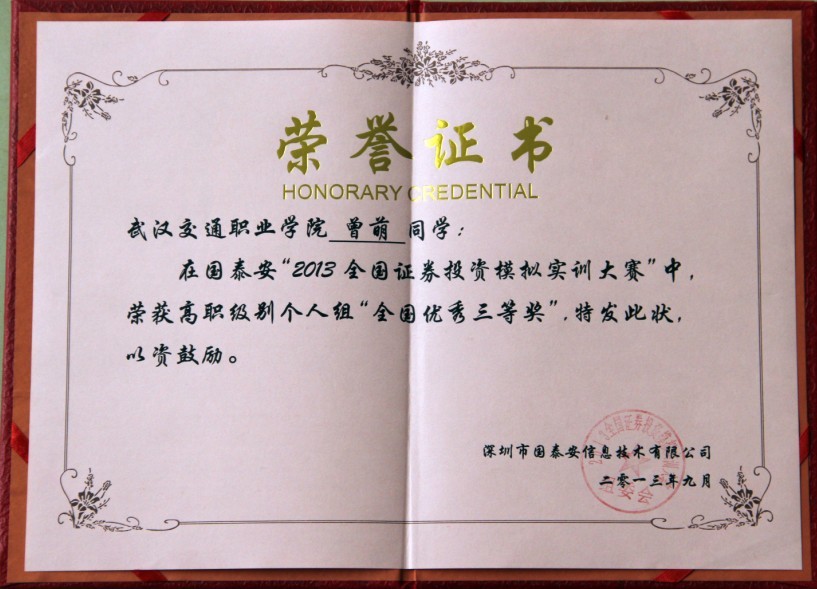 荣誉证书
HONORARY CREDENTIAL
武汉交通职业学院 曾萌 同学：
在国泰安“2013全国证券投资模拟实训大赛”中，
荣获高职级别个人组“全国优秀三等奖”，特发此状，
以资鼓励。
深圳市国泰安信息技术有限公司
二零一三年九月